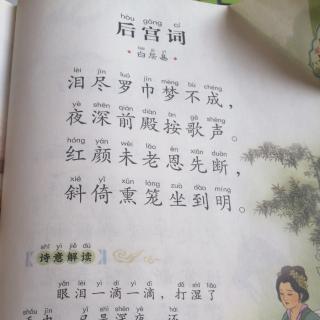 hòu gōng cí
后宫词
bái jū yì
白居易
lèi jìn luó jīn mèng bù chéng
泪尽罗巾梦不成，
yè shēn qián diàn àn gē shēng
夜深前殿按歌声。
hóng yán wèi lǎo ēn xiān duàn
红颜未老恩先断，
xié yǐ xūn lóng zuò dào míng
斜倚熏笼坐到明。
shī yì jiě dú
诗意解读
yǎn lèi yì dī yì dī dǎ shī le
眼泪一滴一滴，打湿了